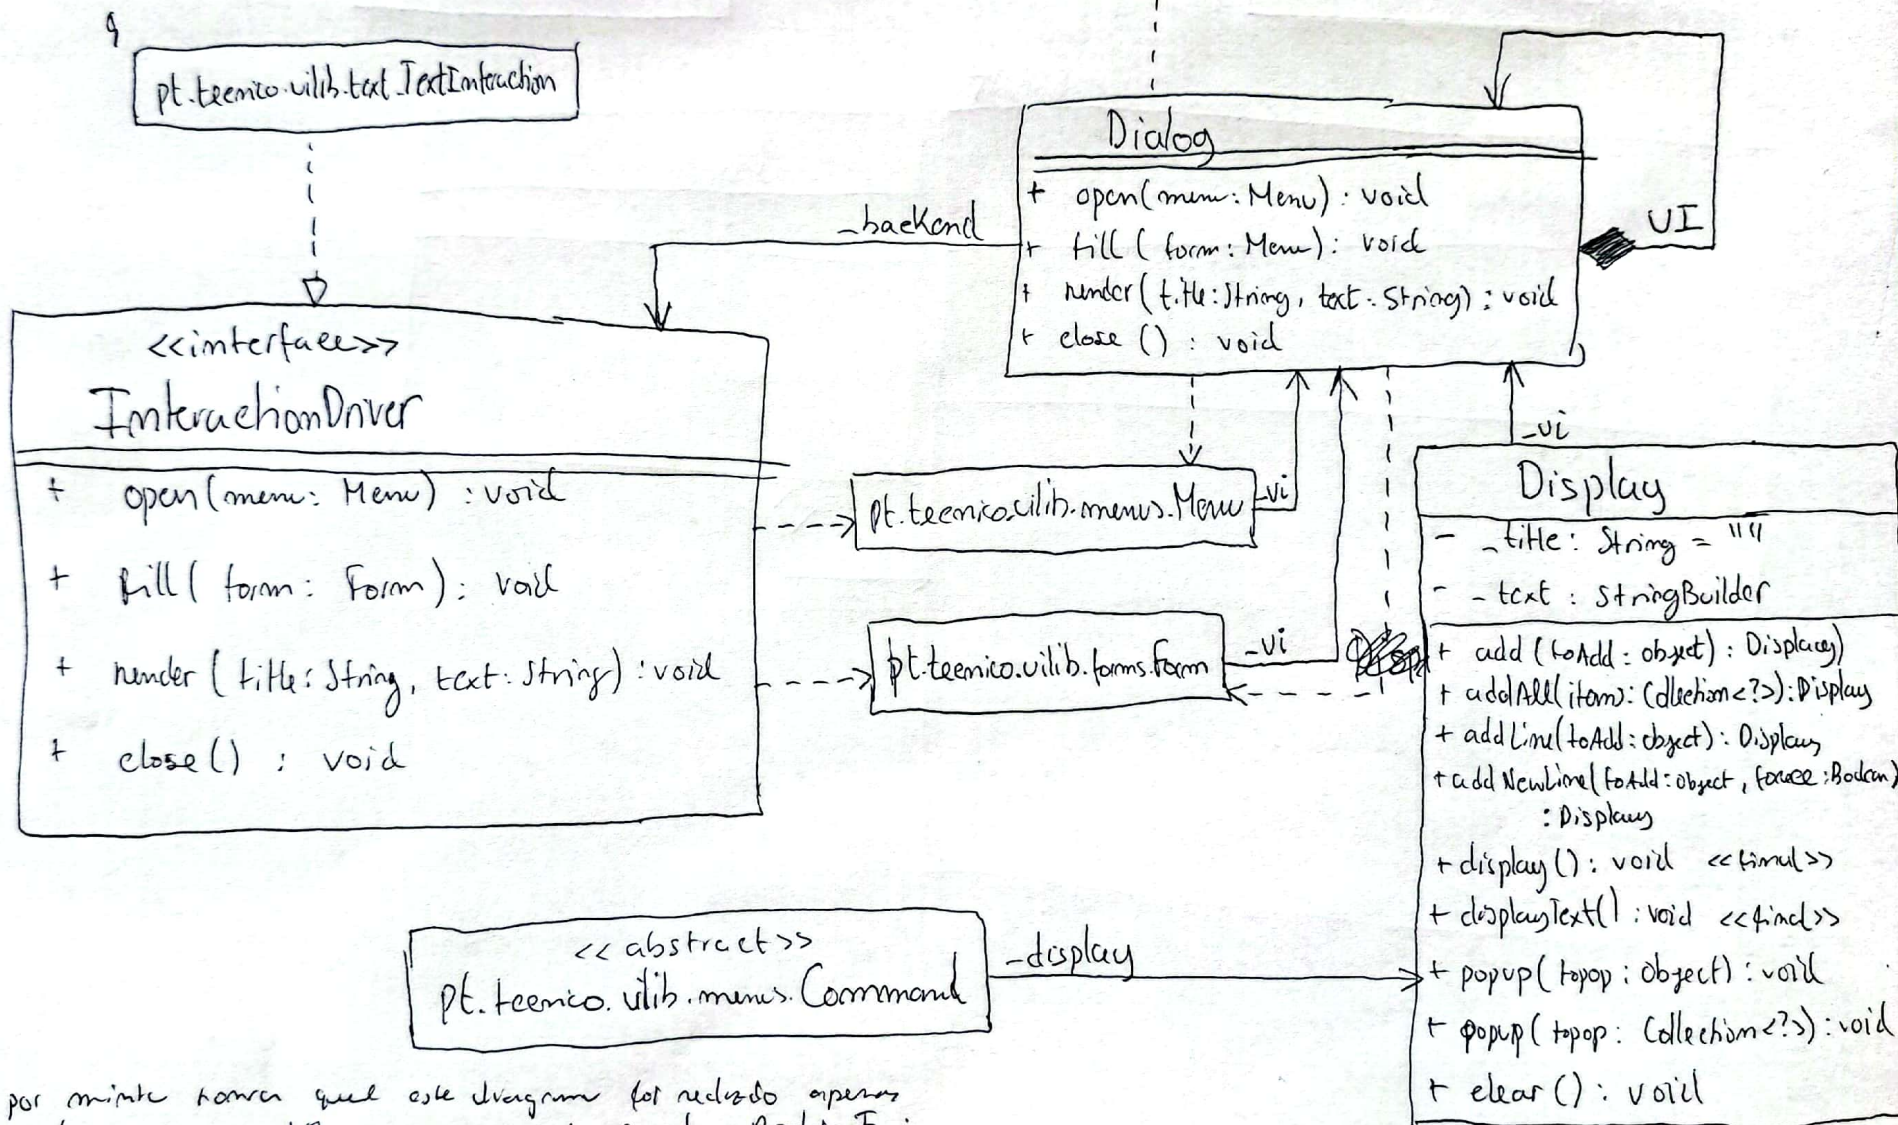 pt.tecnico.uilib.text.TextInteraction
Dialog
+ open(menu: Menu) : void
+ fill( form: Menu) : void
+ render(title: String, text: String) : void
+ close () : void
UI
_backend
<<interface>>
InteractionDriver
+ open(menu: Menu) : void
+ fill( form: Form) : void
+ render( title: String, text: String) : void
+ close() : void
pt.tecnico.uilib.menus.Menu
_ui
pt.tecnico.uilib.forms.Form
_ui
_ui
Display
- _title: String = ""
- _text : StringBuilder
+ add (toAdd: object) : Display)
+ addAll(items: Collection<?>): Display
+ addLine(toAdd: object) : Display
+ addNewLine(toAdd: object, force: Boolean)
: Display
+ display() : void <<final>>
+ displayText() : void <<final>>
+ popup( topop : Object) : void
+ popup( topop : Collection<?>) : void
+ clear () : void
<<abstract>>
pt.tecnico.uilib.menus.Command
_display
por este diagrama foi apenas